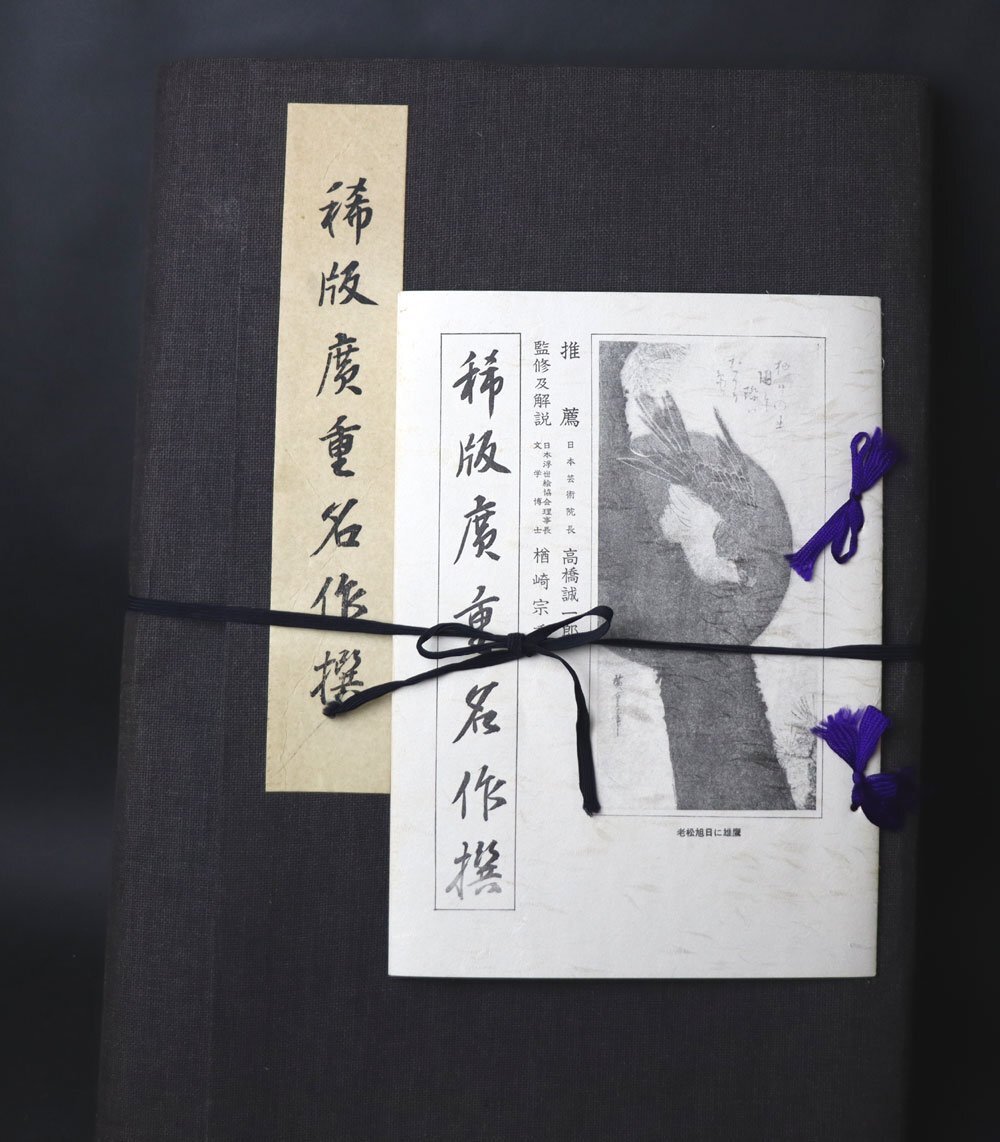 稀版廣重名作撰
推薦 日本芸術院長 高橋誠一郎
監修及解説 日本浮世絵協会理事長 文学博士 楢崎宗
稀版廣重名作撰
老松旭日に雄鷹